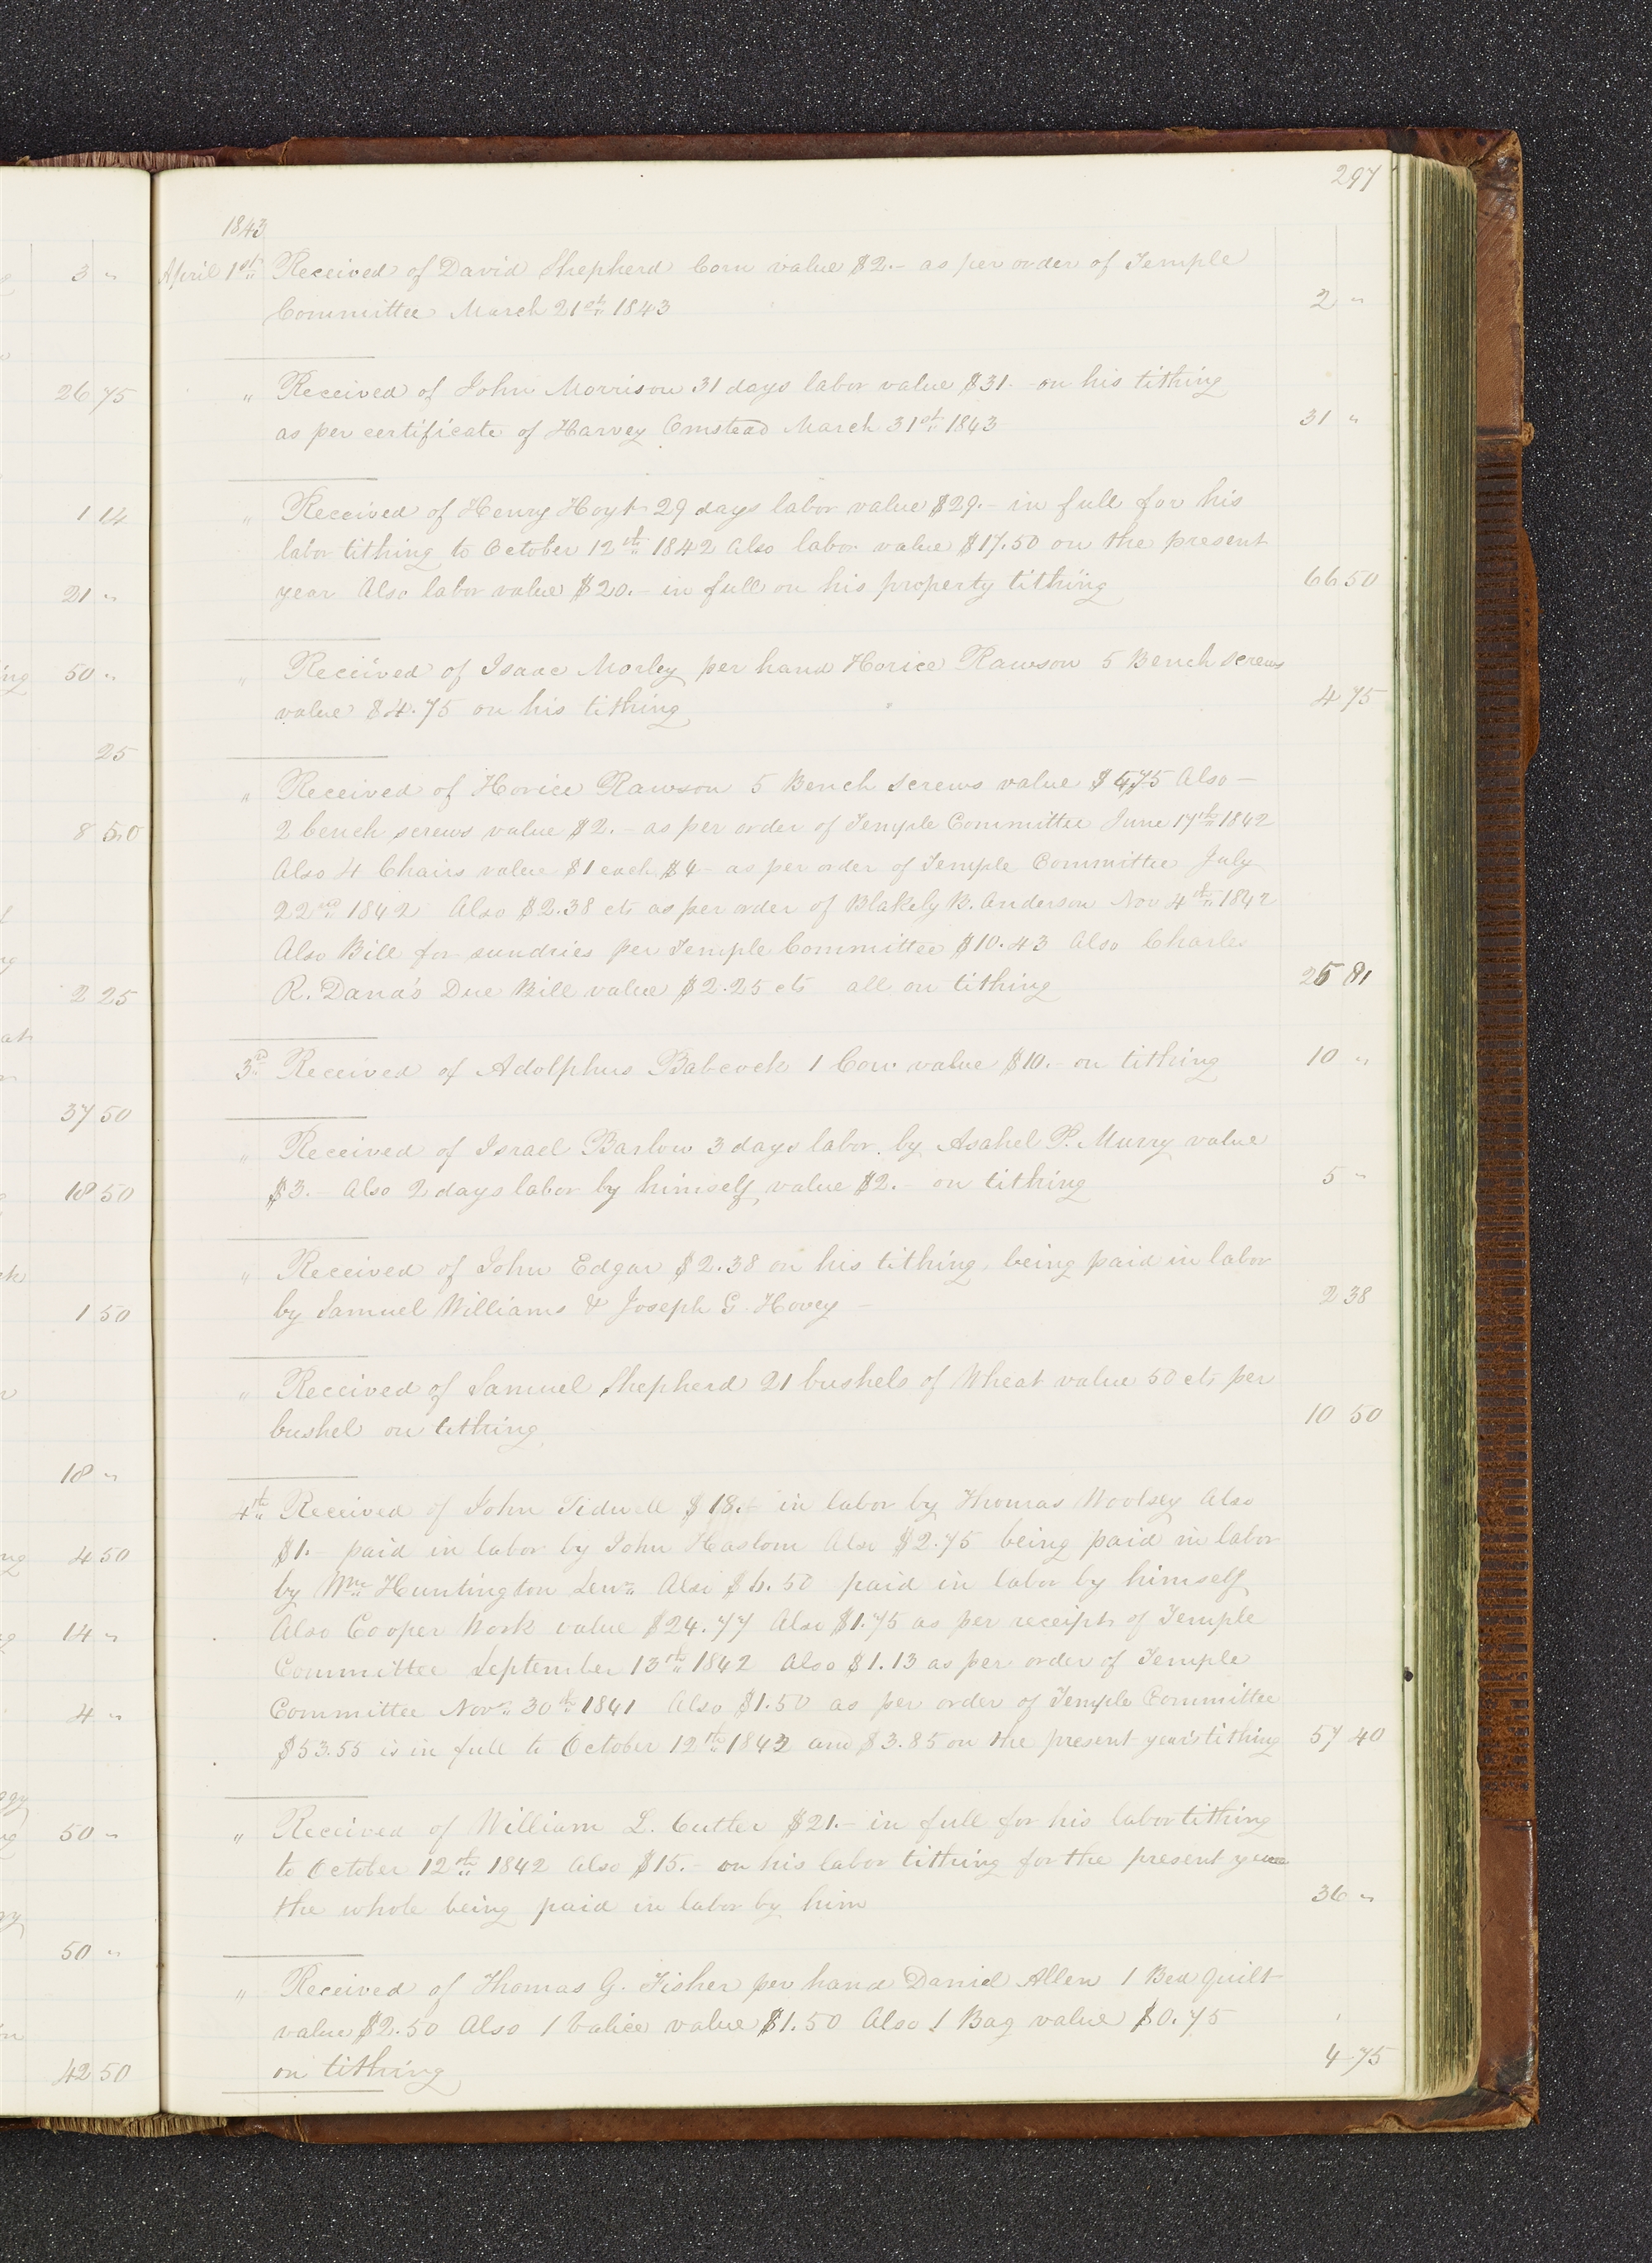 297
1843
April 1st Received of David Shepherd Corn value $2.- as per order of Temple
Committee March 21st 1843 2 "
" Received of John Morrison 31 days labor value $31.- on his tithing
as per certificate of Harvey Omstead March 31st 1843 31 "
" Received of Henry Hoyt 29 days labor value $29.- in full for his
labor tithing to October 12th 1842 Also labor value $17.50 on the present
year Also labor value $20.- in full on his property tithing 66 50
" Received of Isaac Morley per hand Horice Rawson 5 Bench screws
value $4.75 on his tithing 4 75
" Received of Horice Rawson 5 Bench screws value $4.75 Also -
2 bench screws value $2.- as per order of Temple Committee June 17th 1842
Also 4 Chairs value $1 each $4- as per order of Temple Committee July
22nd 1842 Also $2.38 cts as per order of Blakely B. Anderson Nov 4th 1842
Also Bill for sundries per Temple Committee $10.43 Also Charles
R. Dana's Due Bill value $2.25 cts all on tithing 25 81
3rd Received of Adolphus Babcock 1 Cow value $10.- on tithing 10 "
" Received of Israel Barlow 3 days labor by Asahel P. Murry value
$3.- Also 2 days labor by himself value $2.- on tithing 5 "
" Received of John Edgar $2.38 on his tithing being paid in labor
by Samuel Williams & Joseph G. Hovey - 2 38
" Received of Samuel Shepherd 21 bushels of Wheat value 50 cts per
bushel on tithing 10 50
4th Received of John Tidwell $18.- in labor by Thomas Woolsey Also
$1.- paid in labor by John Haslom Also $2.75 being paid in labor
by Wm Huntington Senr Also $6.50 paid in labor by himself
Also Cooper Work value $24.77 Also $1.75 as per receipt of Temple
Committee September 13th 1842 Also $1.13 as per order of Temple
Committee Novr 30th 1841 Also $1.50 as per order of Temple Committee
$53.55 is in full to October 12th 1842 and $3.85 on the present year's tithing 57 40
" Received of William L. Cutler $21.- in full for his labor tithing
to October 12th 1842 Also $15.- on his labor tithing for the present year
the whole being paid in labor by him 36 "
" Received of Thomas G. Fisher per hand Daniel Allen 1 Bed Quilt
value $2.50 Also 1 Valice value $1.50 Also 1 Bag value $0.75
on tithing 4 75
3 "
26 75
1 14
21 "
50 "
25
8 50
2 25
37 50
18 50
1 50
18 "
4 50
14 "
4 "
50 "
50 "
42 50